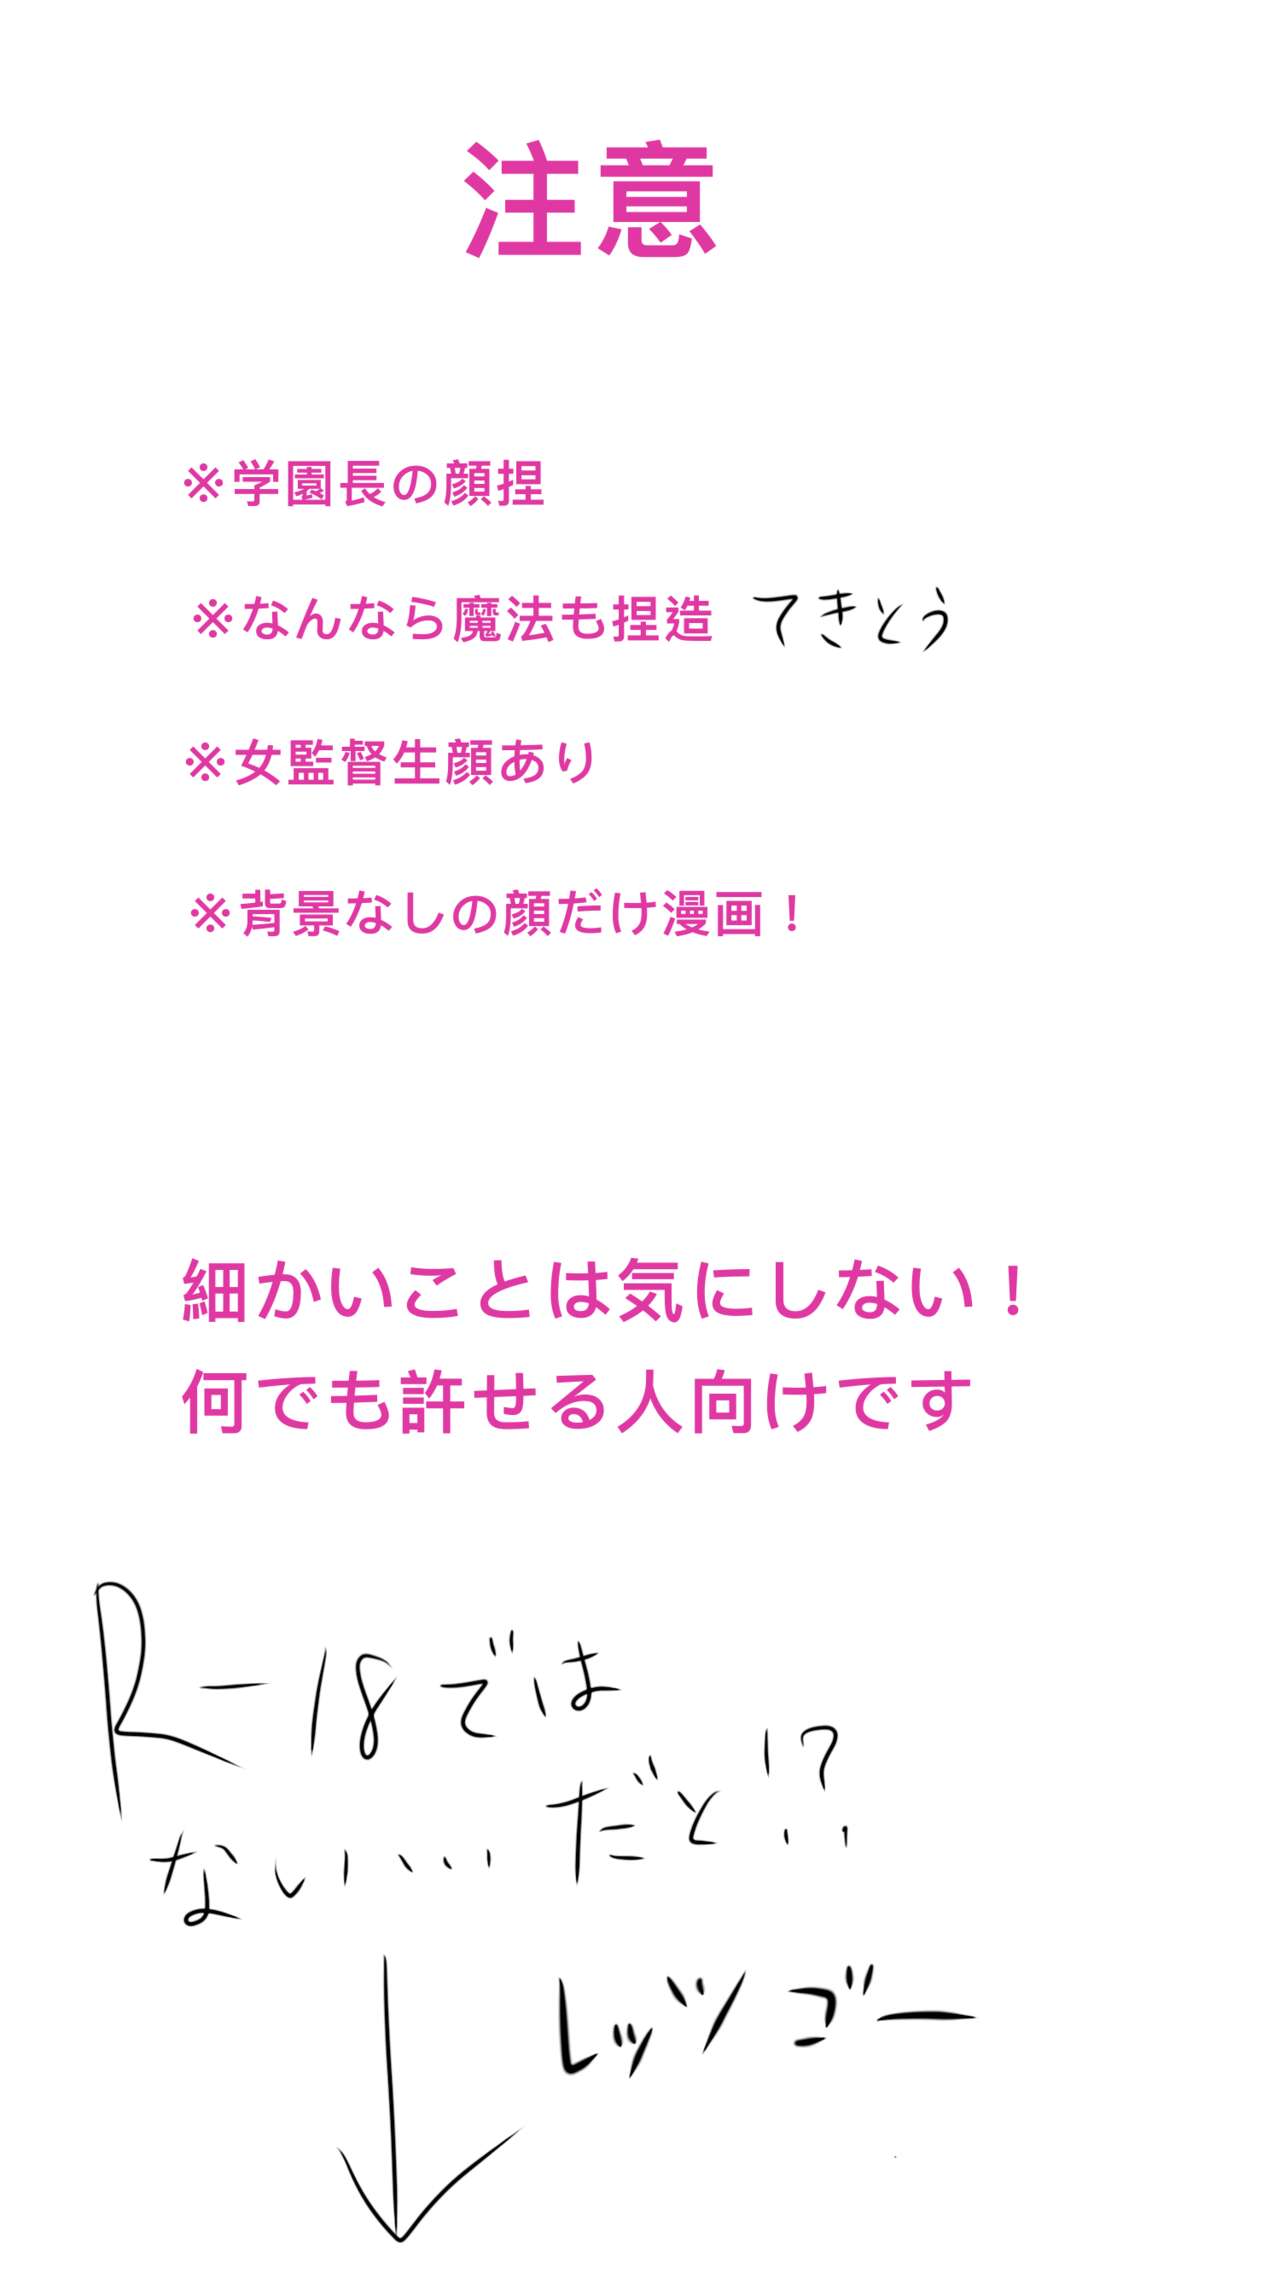 注意
※学園長の顔捏
※なんなら魔法も捏造 てきとう
※女監督生顔あり
※背景なしの顔だけ漫画！
細かいことは気にしない！
何でも許せる人向けです
R-18では
ない、、、だと！？
レッツゴー